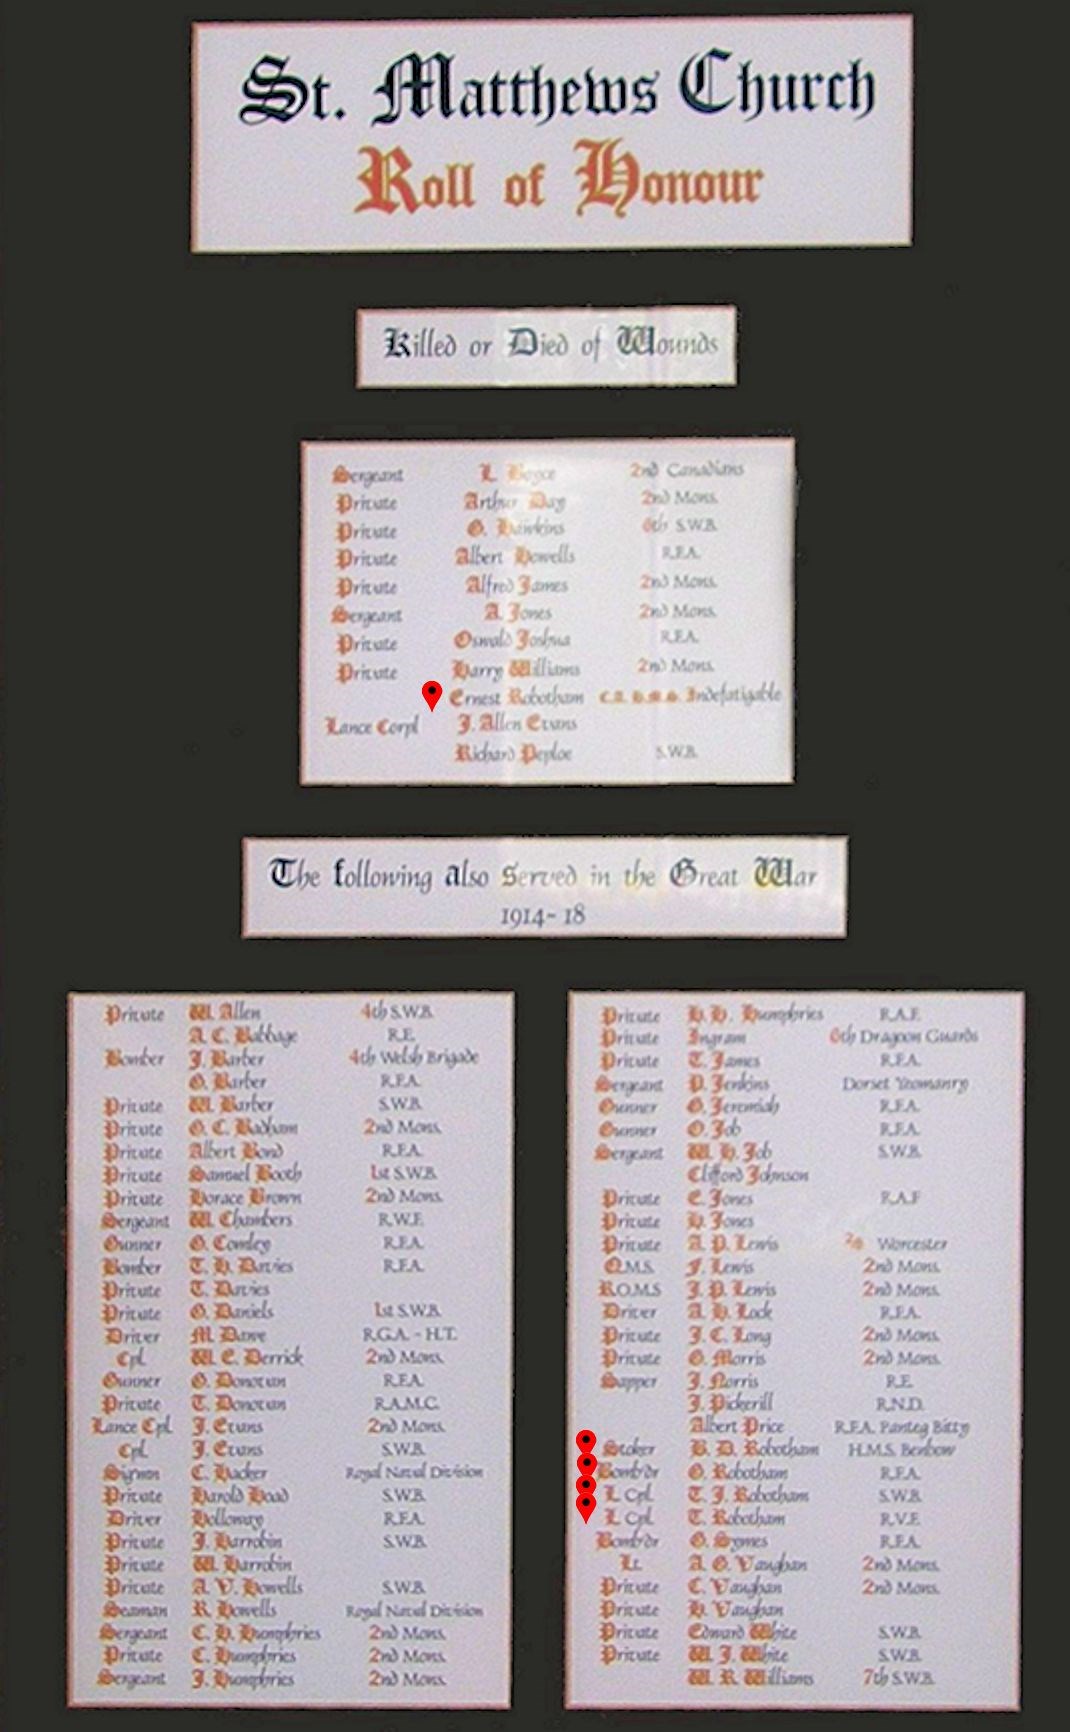 St. Matthews Church
Roll of Honour
Killed or Died of Wounds
Sergeant L. Boyce 2nd Canadians
Private Arthur Day 2nd Mons.
Private G. Hawkins 6th S.W.B.
Private Albert Howells R.F.A.
Private Alfred James 2nd Mons.
Sergeant A. Jones 2nd Mons.
Private Oswald Joshua R.F.A.
Private Harry Williams 2nd Mons.
Ernest Robotham Indefatigable
Lance Corpl J. Allen Evans
Richard Peploe S.W.B.
The following also Served in the Great War
1914-18
Private W. Allen 4th S.W.B.
A. C. Babbage R.E.
Bomber J. Barber 4th Welsh Brigade
G. Barber R.F.A.
Private W. Barber S.W.B.
Private G. C. Badham 2nd Mons.
Private Albert Bond R.F.A.
Private Samuel Booth 1st S.W.B.
Private Horace Brown 2nd Mons.
Sergeant W. Chambers R.W.F.
Gunner G. Cowley R.F.A.
Bomber T. H. Davies R.F.A.
Private T. Davies
Private G. Daniels 1st S.W.B.
Driver M. Dawe R.G.A. - H.T.
Cpl. W. E. Derrick 2nd Mons.
Gunner G. Donovan R.F.A.
Private T. Donovan R.A.M.C.
Lance Cpl. J. Evans 2nd Mons.
Cpl. J. Evans S.W.B.
Sigmn C. Hacker Royal Naval Division
Private Harold Hoad S.W.B.
Driver Holloway R.F.A.
Private J. Harrobin S.W.B.
Private W. Harrobin
Private A. V. Howells S.W.B.
Seaman R. Howells Royal Naval Division
Sergeant C. H. Humphries 2nd Mons.
Private C. Humphries 2nd Mons.
Sergeant J. Humphries 2nd Mons.
Private H. H. Humphries R.A.F.
Private Ingram 6th Dragoon Guards
Private T. James R.F.A.
Sergeant D. Jenkins Dorset Yeomanry
Gunner G. Jeremiah R.F.A.
Gunner O. Job R.F.A.
Sergeant W. H. Job S.W.B.
Clifford Johnson
Private E. Jones R.A.F
Private H. Jones
Private A. P. Lewis Worcester
Q.M.S. F. Lewis 2nd Mons.
R.O.M.S J. P. Lewis 2nd Mons.
Driver A. H. Lock R.F.A.
Private J. C. Long 2nd Mons.
Private G. Morris 2nd Mons.
Sapper J. Norris R.E.
J. Pickerill R.N.D.
Albert Price R.F.A. Panteg Batty
Stoker B. D. Robotham H.M.S. Benbow
Bombdr G. Robotham R.F.A.
L. Cpl. T. J. Robotham S.W.B.
L. Cpl. T. Robotham R.V.F.
Bombdr G. Symes R.F.A.
Lt. A. G. Vaughan 2nd Mons.
Private C. Vaughan 2nd Mons.
Private H. Vaughan
Private Edward White S.W.B.
Private W. J. White S.W.B.
W. R. Williams 7th S.W.B.